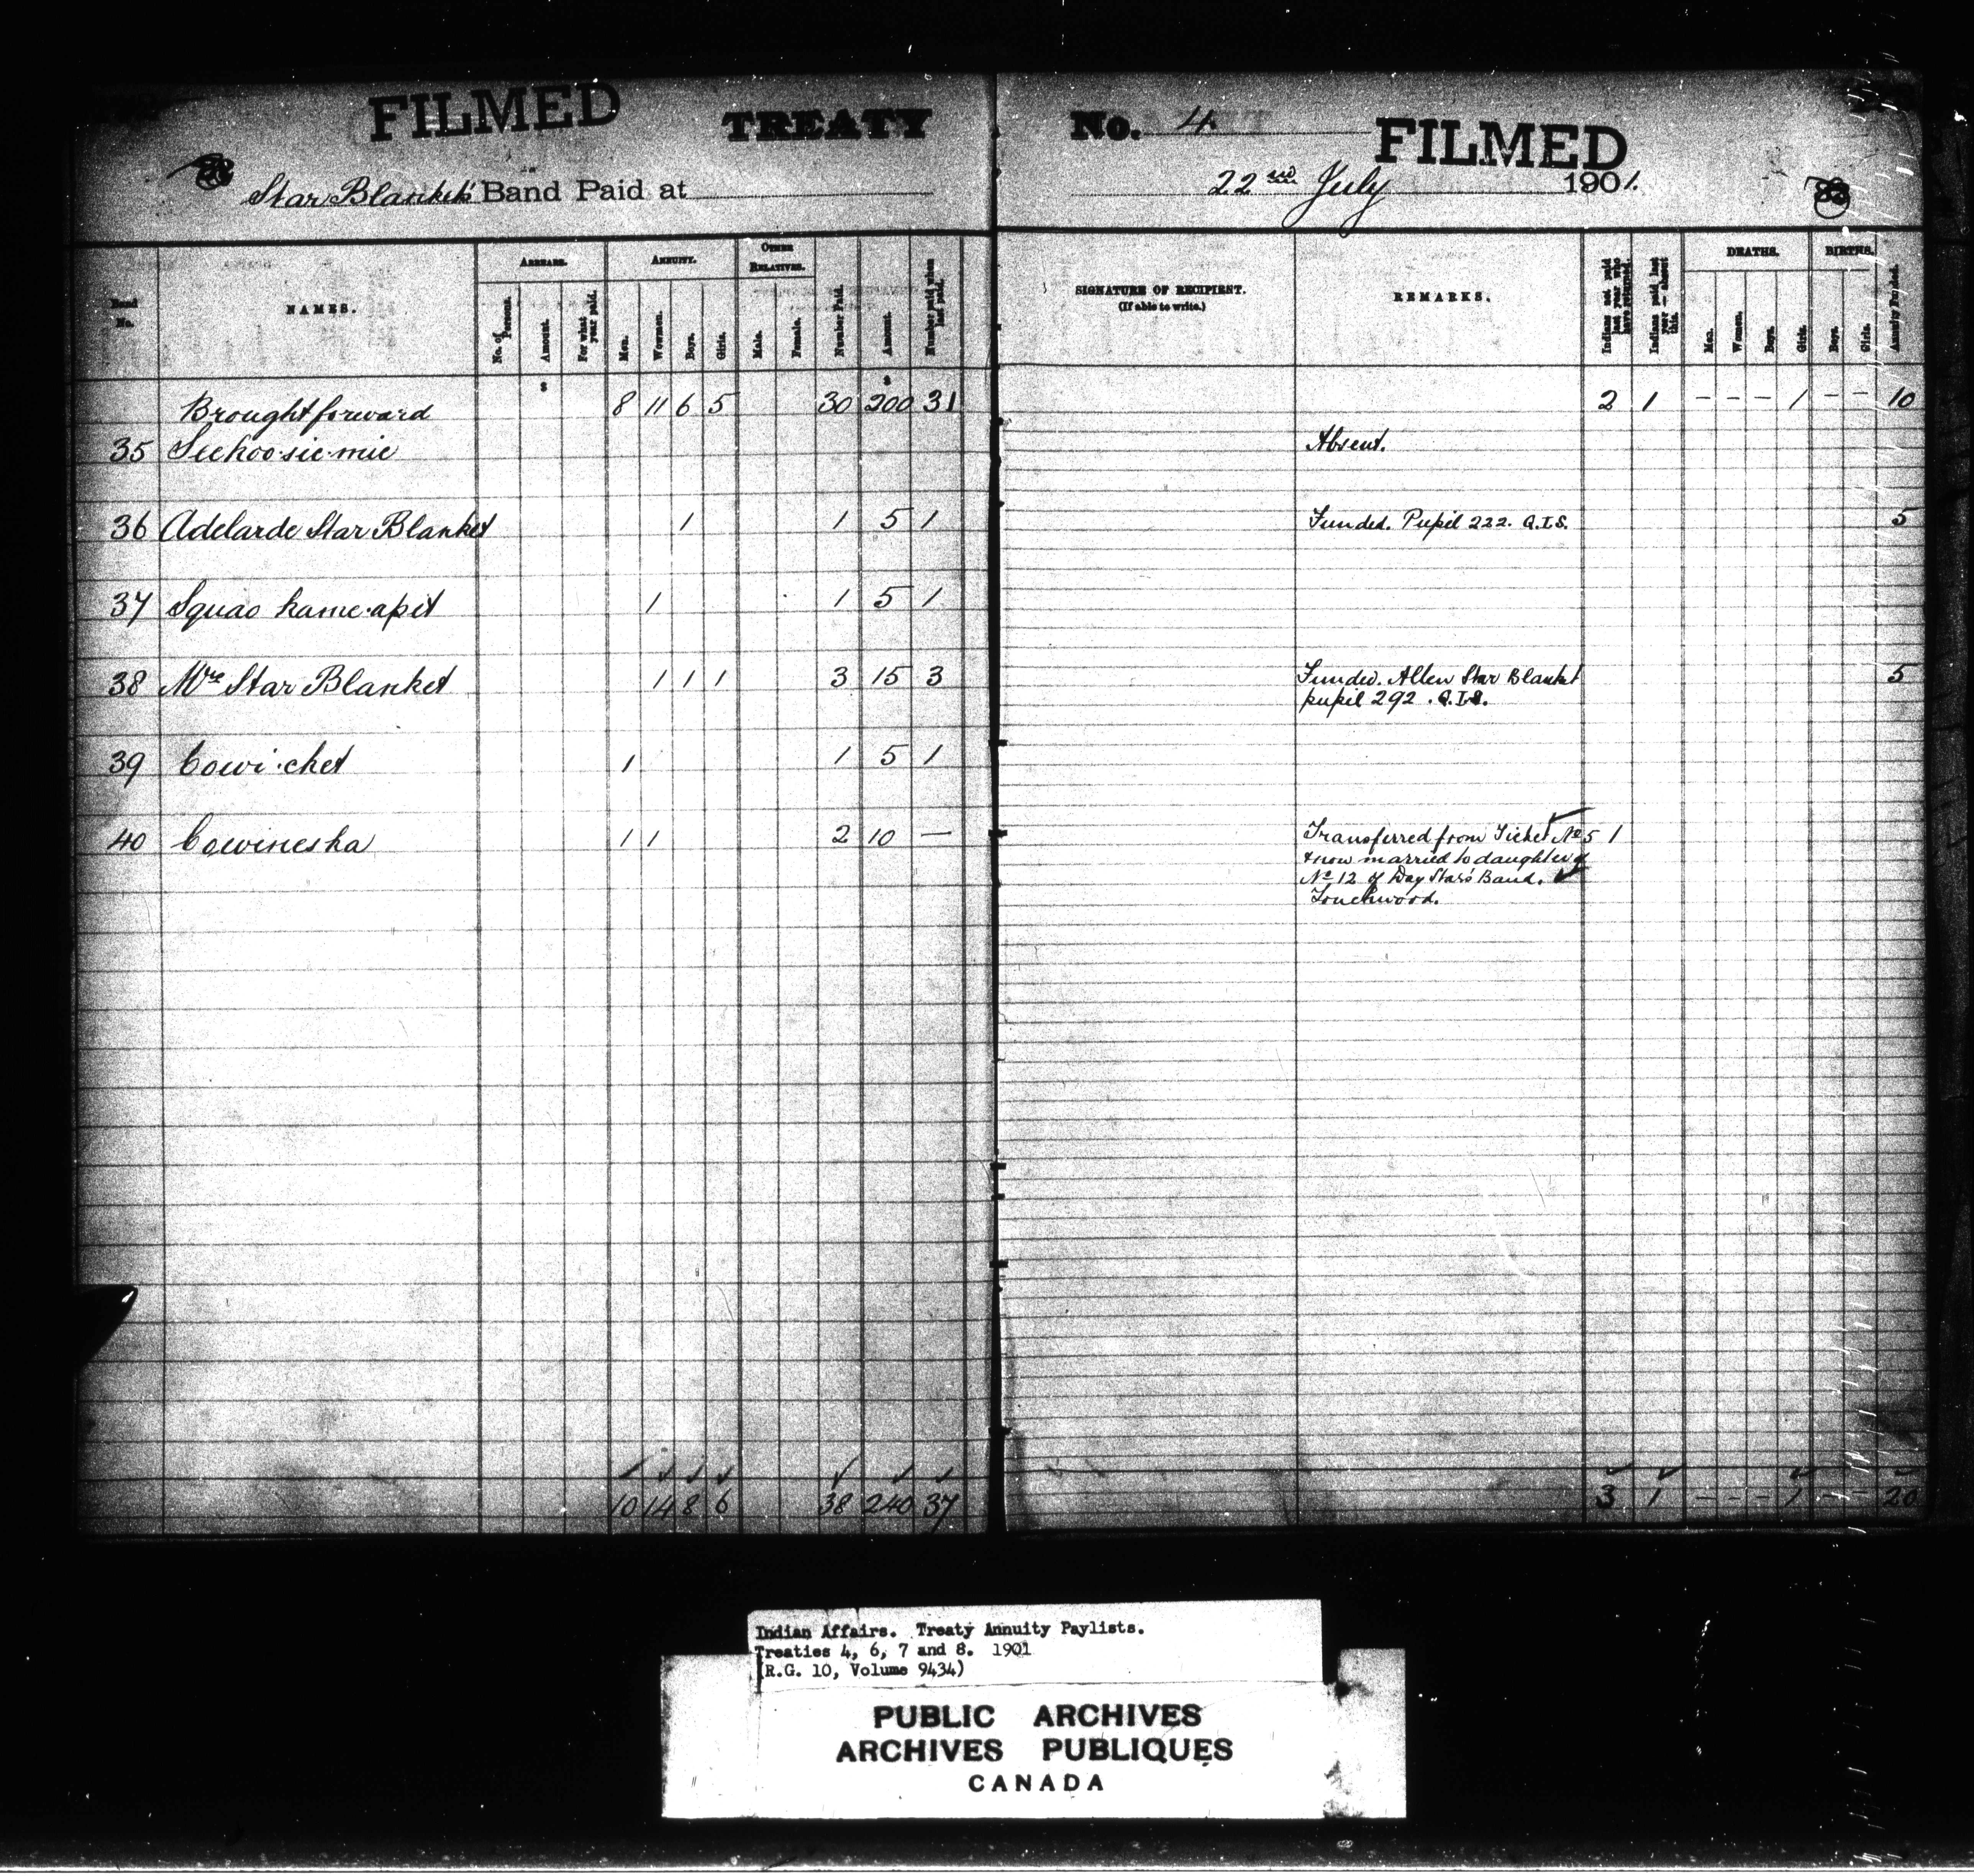 FILMED TREATY No. 4 FILMED
Star Blanket's Band Paid at 22nd July 1901.
Band No. NAMES. ARREARS. ANNUITY. OTHER RELATIVES. Number Paid. Amount. Number paid when last paid. SIGNATURE OF RECIPIENT. REMARKS. Indians not paid last year who have returned. Indians paid last year — absent this. DEATHS. BIRTHS. Annuity Funded.
No. of Persons. Amount. For what year paid. Men. Women. Boys. Girls. Male. Female. (If able to write.) Men. Women. Boys. Girls. Boys. Girls.
$ $
Brought forward 8 11 6 5 30 200 31 2 1 – – – 1 – – 10
35 Seekoo·sic·mic Absent.
36 Adelarde Star Blanket 1 1 5 1 Funded. Pupil 222. Q.I.S. 5
37 Squao kame·apit 1 1 5 1
38 Mrs Star Blanket 1 1 1 3 15 3 Funded. Allen Star Blanket 5
pupil 292. Q.I.S.
39 Cowi·chet 1 1 5 1
40 Cowineska 1 1 2 10 — Transferred from Ticket No 5 1
& now married to daughter of
No 12 of Day Star's Band.
Touchwood.
10 14 8 6 38 240 37 3 1 – – – 1 – – 20
Indian Affairs. Treaty Annuity Paylists.
Treaties 4, 6, 7 and 8. 1901
(R.G. 10, Volume 9434)
PUBLIC ARCHIVES
ARCHIVES PUBLIQUES
CANADA